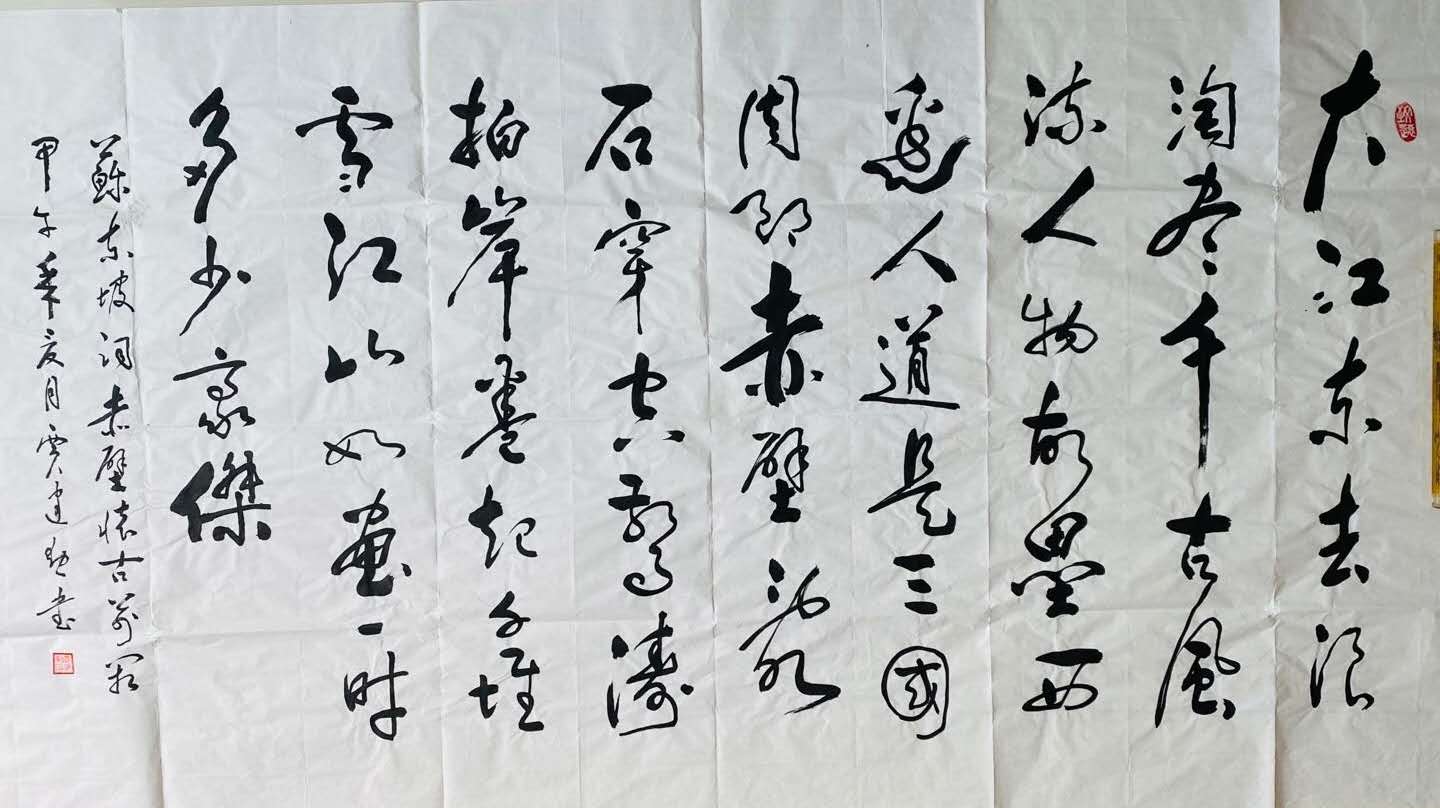 大江东去浪
淘尽千古风
流人物故壘西
邊人道是三國
周郎赤壁亂
石穿空驚濤
拍岸卷起千堆
雪江山如畫一时
多少豪傑
蘇东坡词赤壁懷古前
甲午夏月书